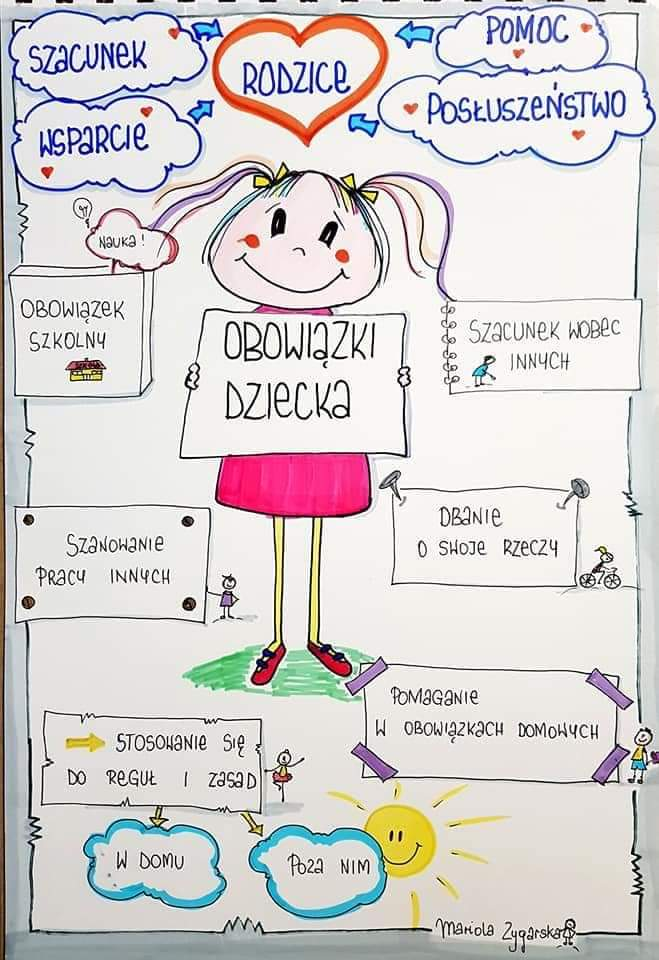 SZACUNEK
RODZICE
POMOC
WSPARCIE
POSŁUSZEŃSTWO
NAUKA!
OBOWIĄZEK
SZKOLNY
OBOWIĄZKI
DZIECKA
SZACUNEK WOBEC
INNYCH
SZANOWANIE
PRACY INNYCH
DBANIE
O SWOJE RZECZY
POMAGANIE
W OBOWIĄZKACH DOMOWYCH
STOSOWANIE SIĘ
DO REGUŁ I ZASAD
W DOMU
POZA NIM
Mariola Zygarska